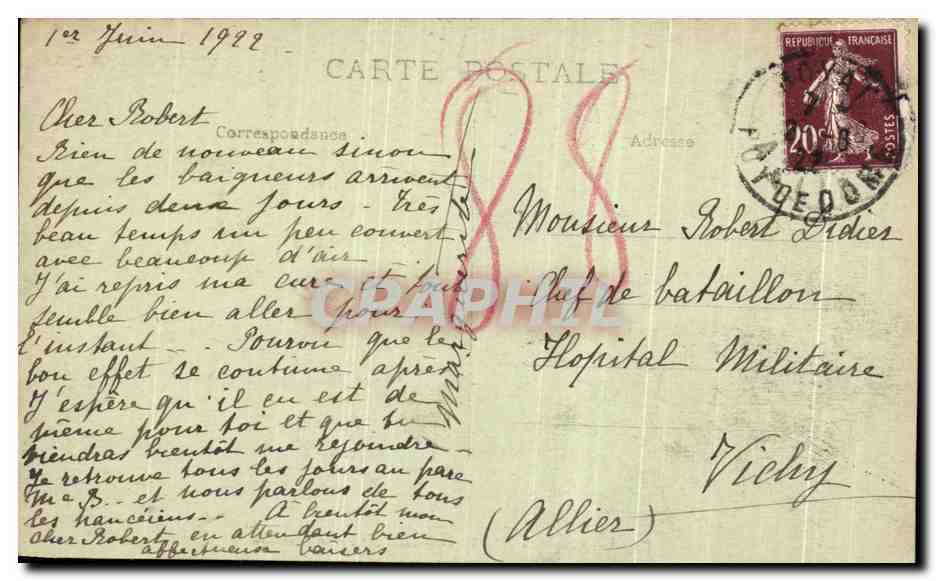 1er Juin 1922
CARTE POSTALE
Correspondance
Adresse
REPUBLIQUE FRANÇAISE
20c
POSTES
PUY DE DOME
88
Cher Robert
Rien de nouveau sinon
que les baigneurs arrivent
depuis deux jours - Très
beau temps un peu couvert
avec beaucoup d'air
J'ai repris ma cure et tout
semble bien aller pour
l'instant - . Pourvu que le
bon effet se continue après
J'espère qu'il en est de
même pour toi et que tu
viendras bientôt me rejoindre -
Je retrouve tous les jours au parc
Me B.. et nous parlons de tous
les nancéiens - . A bientôt mon
cher Robert en attendant bien
affectueux baisers
Monsieur Robert Didier
Chef de bataillon
Hopital Militaire
Vichy
(Allier)
CRAPHIL